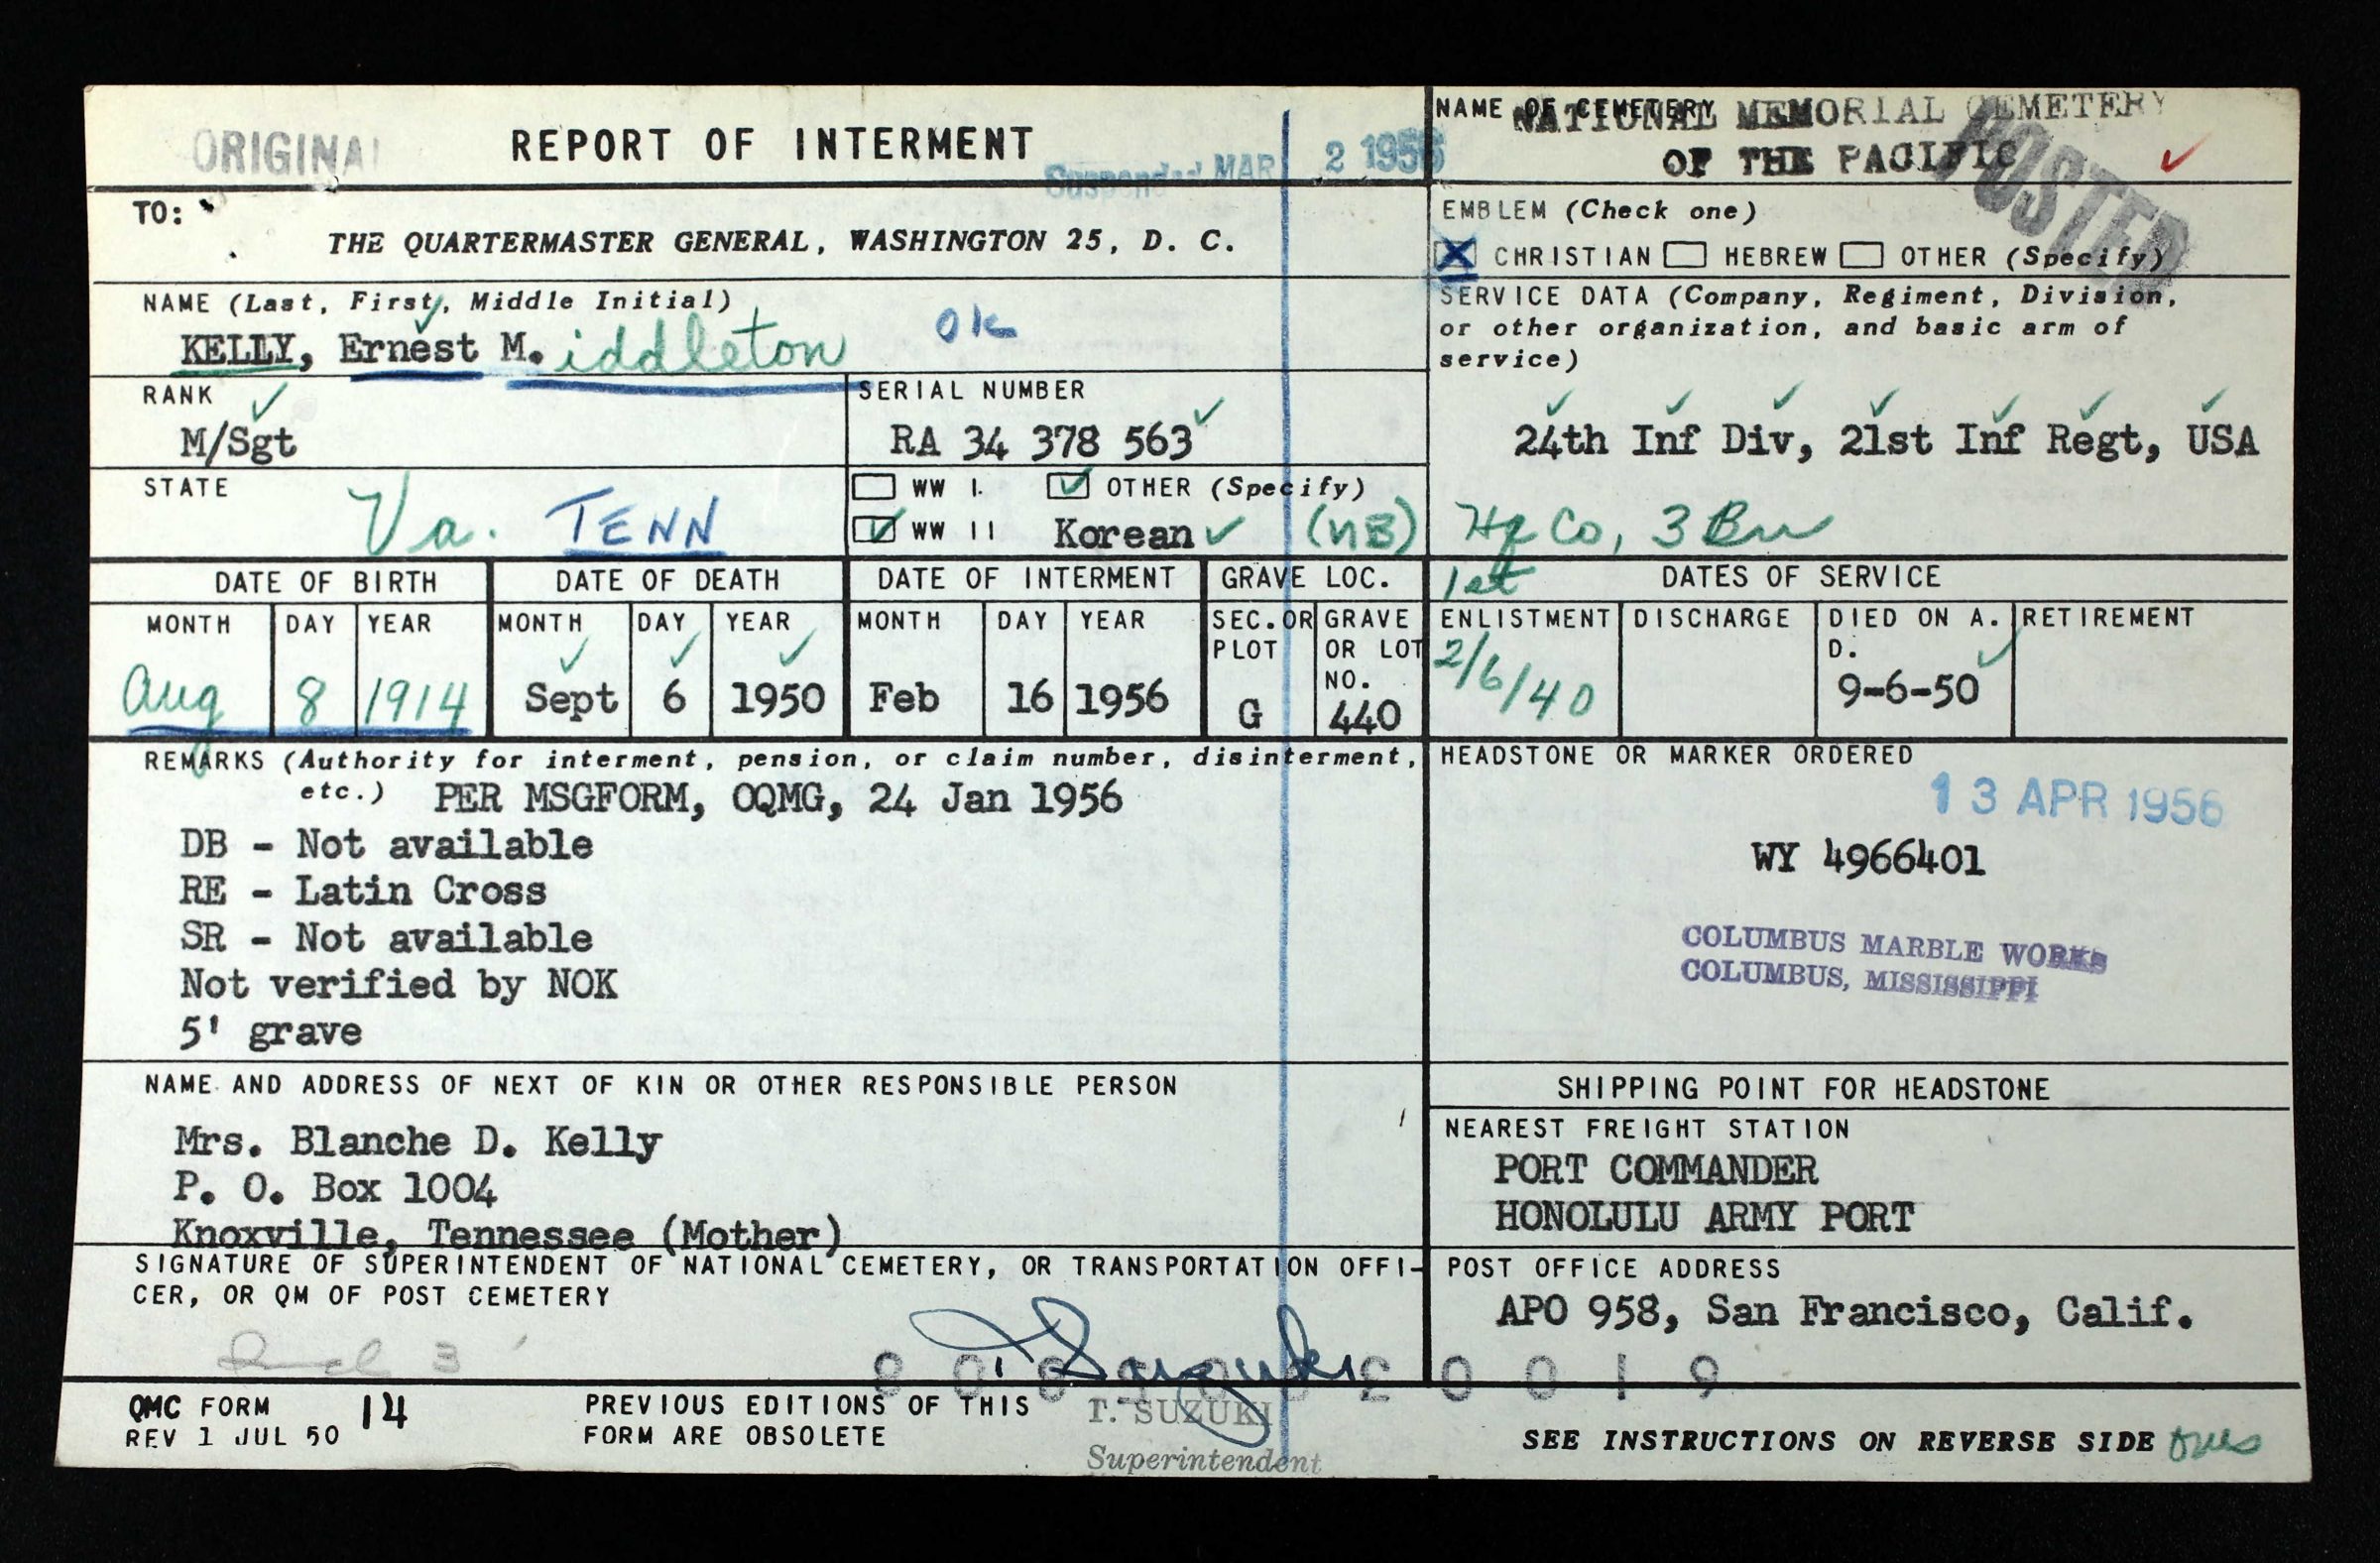 ORIGINAL
REPORT OF INTERMENT
Suspended MAR 2 1956
NAME OF CEMETERY
NATIONAL MEMORIAL CEMETERY
OF THE PACIFIC ✓
POSTED
TO:
THE QUARTERMASTER GENERAL, WASHINGTON 25, D. C.
EMBLEM (Check one)
X CHRISTIAN HEBREW OTHER (Specify)
NAME (Last, First, Middle Initial)
KELLY, Ernest M. iddleton OK
SERVICE DATA (Company, Regiment, Division,
or other organization, and basic arm of
service)
24th Inf Div, 21st Inf Regt, USA
Hq Co, 3 Bn
RANK
M/Sgt
SERIAL NUMBER
RA 34 378 563
STATE
Va. TENN
WW I. ✓ OTHER (Specify)
✓ WW II Korean ✓ (NB)
DATE OF BIRTH
MONTH DAY YEAR
Aug 8 1914
DATE OF DEATH
MONTH DAY YEAR
Sept 6 1950
DATE OF INTERMENT
MONTH DAY YEAR
Feb 16 1956
GRAVE LOC.
SEC. OR PLOT
G
GRAVE OR LOT NO.
440
1st DATES OF SERVICE
ENLISTMENT DISCHARGE DIED ON A. D. RETIREMENT
2/6/40 9-6-50
REMARKS (Authority for interment, pension, or claim number, disinterment,
etc.) PER MSGFORM, OQMG, 24 Jan 1956
DB - Not available
RE - Latin Cross
SR - Not available
Not verified by NOK
5' grave
HEADSTONE OR MARKER ORDERED
13 APR 1956
WY 4966401
COLUMBUS MARBLE WORKS
COLUMBUS, MISSISSIPPI
NAME AND ADDRESS OF NEXT OF KIN OR OTHER RESPONSIBLE PERSON
Mrs. Blanche D. Kelly
P. O. Box 1004
Knoxville, Tennessee (Mother)
SHIPPING POINT FOR HEADSTONE
NEAREST FREIGHT STATION
PORT COMMANDER
HONOLULU ARMY PORT
SIGNATURE OF SUPERINTENDENT OF NATIONAL CEMETERY, OR TRANSPORTATION OFFI-
CER, OR QM OF POST CEMETERY
T. Suzuki
T. SUZUKI
Superintendent
POST OFFICE ADDRESS
APO 958, San Francisco, Calif.
QMC FORM 14
REV 1 JUL 50
PREVIOUS EDITIONS OF THIS
FORM ARE OBSOLETE
SEE INSTRUCTIONS ON REVERSE SIDE